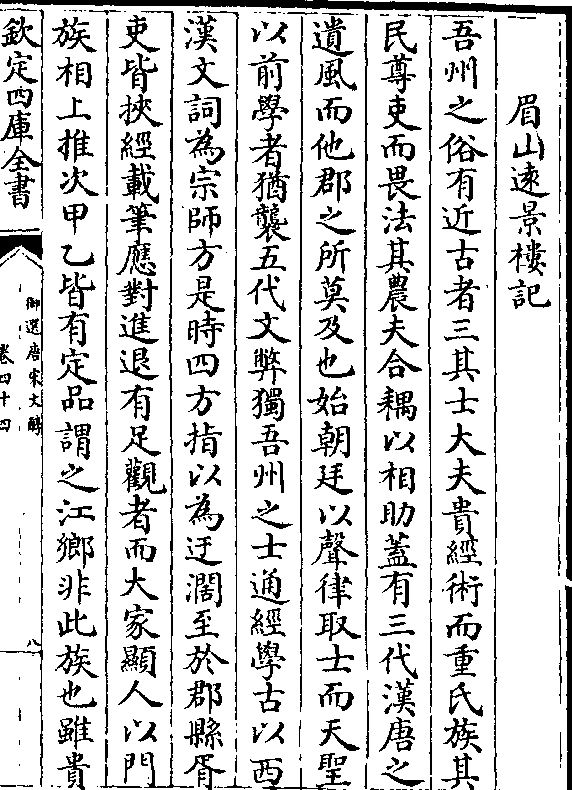 眉山逺景樓記
吾州之俗有近古者三其士大夫貴經術而重氏族其
民尊吏而畏法其農夫合耦以相助蓋有三代漢唐之
遺風而他郡之所莫及也始朝廷以聲律取士而天聖
以前學者猶襲五代文弊獨吾州之士通經學古以西
漢文詞為宗師方是時四方指以為迂濶至於郡縣胥
吏皆挾經載筆應對進退有足觀者而大家顯人以門
族相上推次甲乙皆有定品謂之江鄉非此族也雖貴
欽定四庫全書
御選唐宋文醇
卷四十四
八